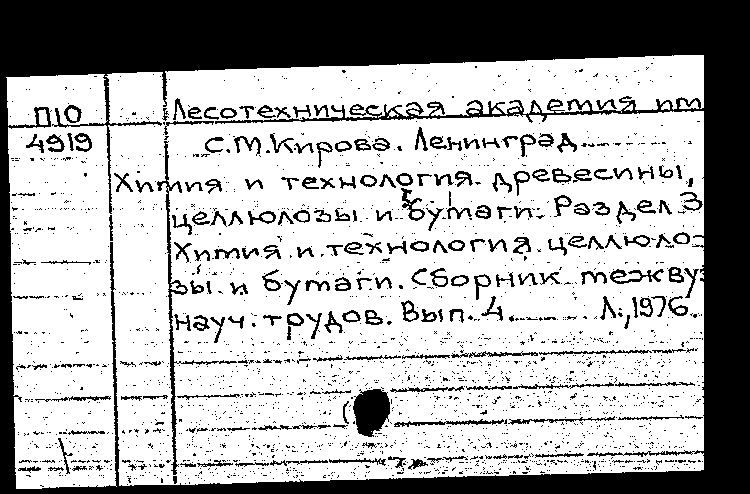 П10 Лесотехническая академия им
4919 С.М.Кирова. Ленинград.
Химия и технология древесины,
целлюлозы и бумаги. Раздел 3
Химия и технология целлюло-
зы и бумаги. Сборник межвуз
науч. трудов. Вып. 4. Л., 1976.